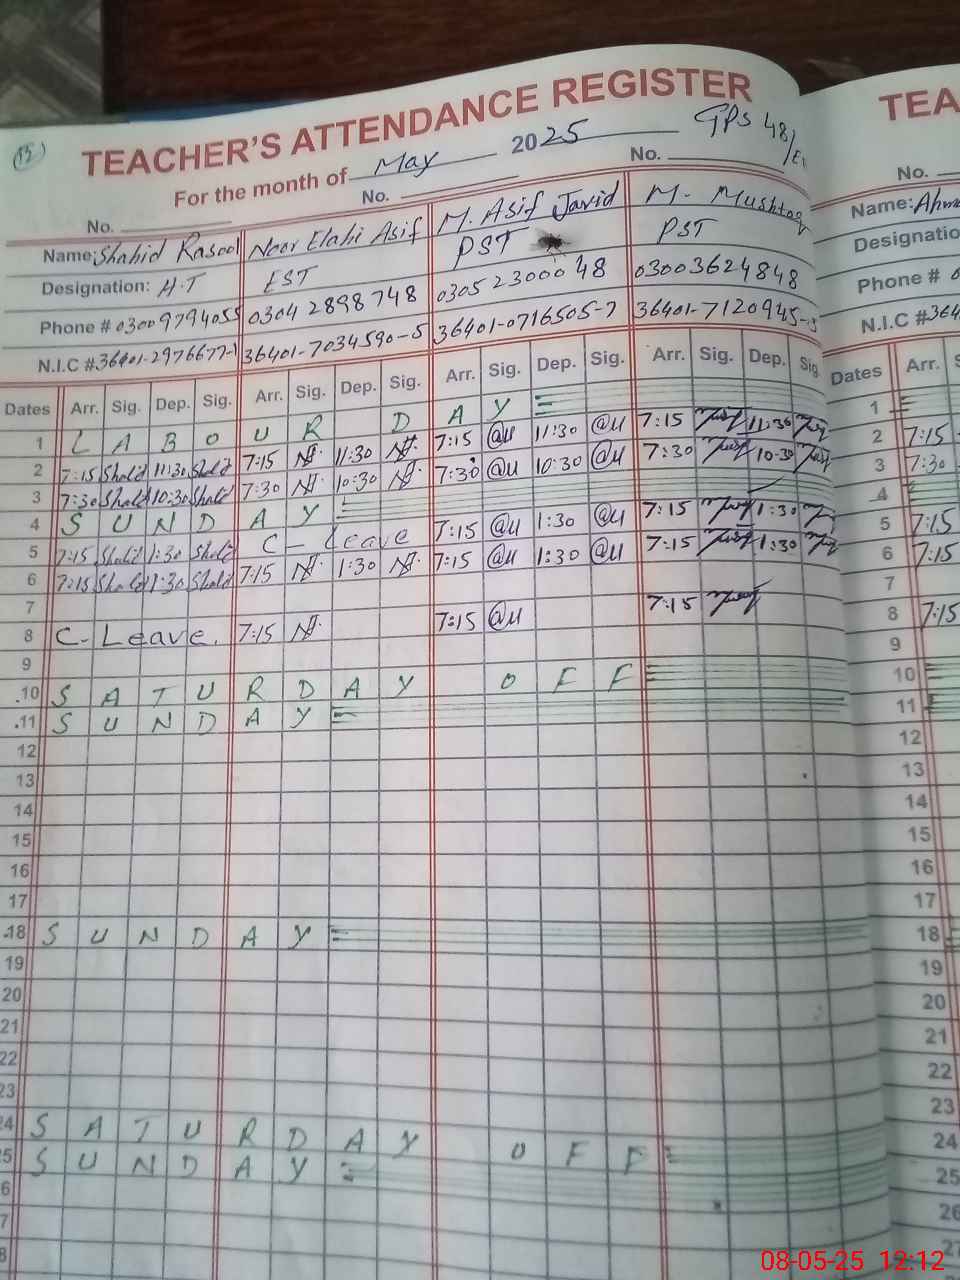 15
TEACHER'S ATTENDANCE REGISTER
For the month of May 2025 GPS 48/
No. No. No.
Name: Shahid Rasool Noor Elahi Asif M. Asif Javid M. Mushtaq
Designation: H.T EST PST PST
Phone # 03009794055 0304 2898748 0305 2300048 03003624848
N.I.C # 36401-2976677-1 36401-7034590-5 36401-0716505-7 36401-7120945-
Dates Arr. Sig. Dep. Sig. Arr. Sig. Dep. Sig. Arr. Sig. Dep. Sig. Arr. Sig. Dep. Sig.
1 LABOUR DAY
2 7:15 Shahid 11:30 Shahid 7:15 11:30 7:15 @u 11:30 @u 7:15 11:30
3 7:30 Shahid 10:30 Shahid 7:30 10:30 7:30 @u 10:30 @u 7:30 10:30
4 SUNDAY
5 7:15 Shahid 1:30 Shahid C-Leave 7:15 @u 1:30 @u 7:15 1:30
6 7:15 Shahid 1:30 Shahid 7:15 1:30 7:15 @u 1:30 @u 7:15 1:30
7
8 C-Leave. 7:15 7:15 @u 7:15
9
10 SATURDAY OFF
11 SUNDAY
12
13
14
15
16
17
18 SUNDAY
19
20
21
22
23
24 SATURDAY OFF
25 SUNDAY
6
7
8
TEA
No.
Name: Ahm
Designatio
Phone # 0
N.I.C #364
Dates Arr.
1
2 7:15
3 7:30
4
5 7:15
6 7:15
7
8 7:15
9
10
11
12
13
14
15
16
17
18
19
20
21
22
23
24
25
26
27
08-05-25 12:12